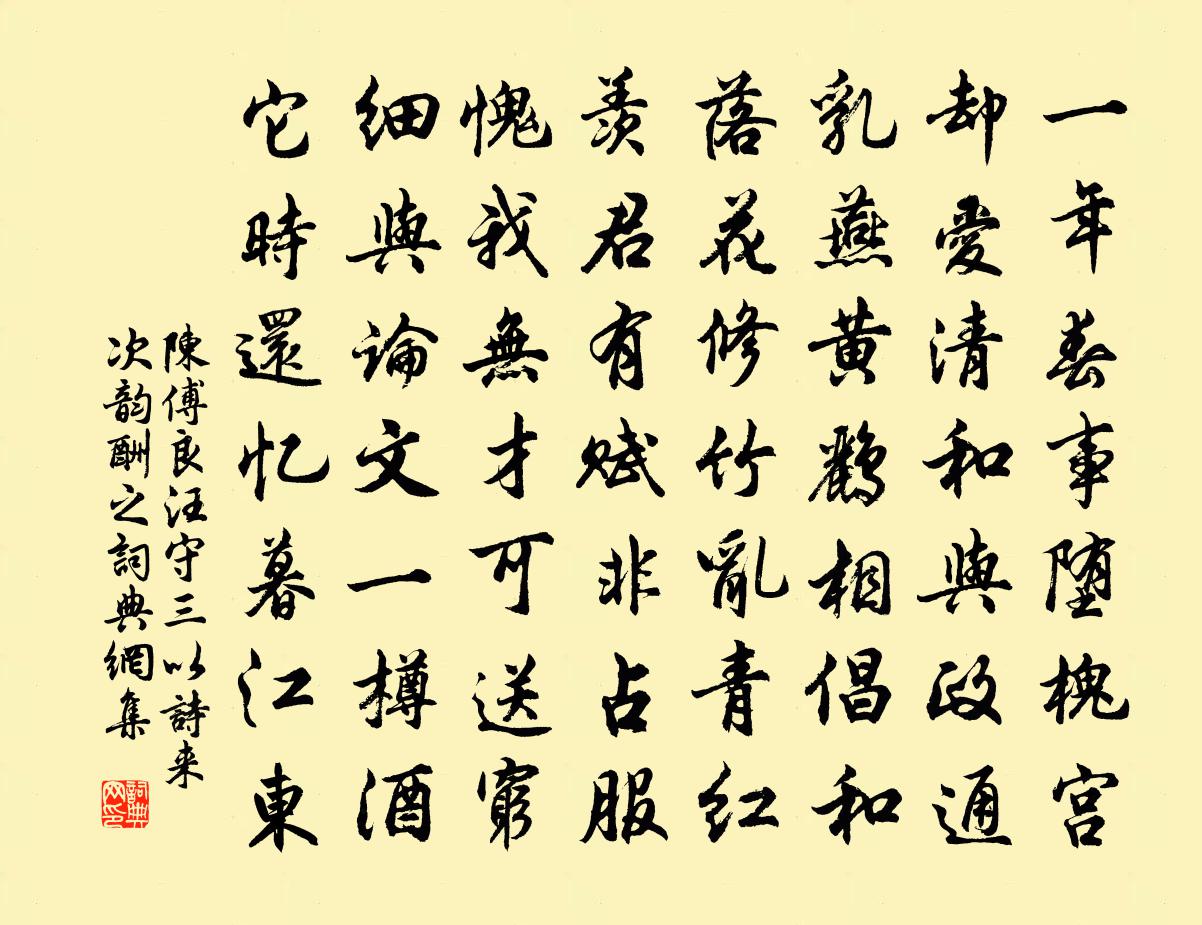 一年春事堕槐宫
却愛清和與政通
乳燕黄鸝相倡和
落花修竹亂青红
羨君有赋非占服
愧我無才可送窮
细與論文一樽酒
它時還忆暮江東
陳傅良汪守三以詩来
次韵酬之詞典網集
詞典
网印